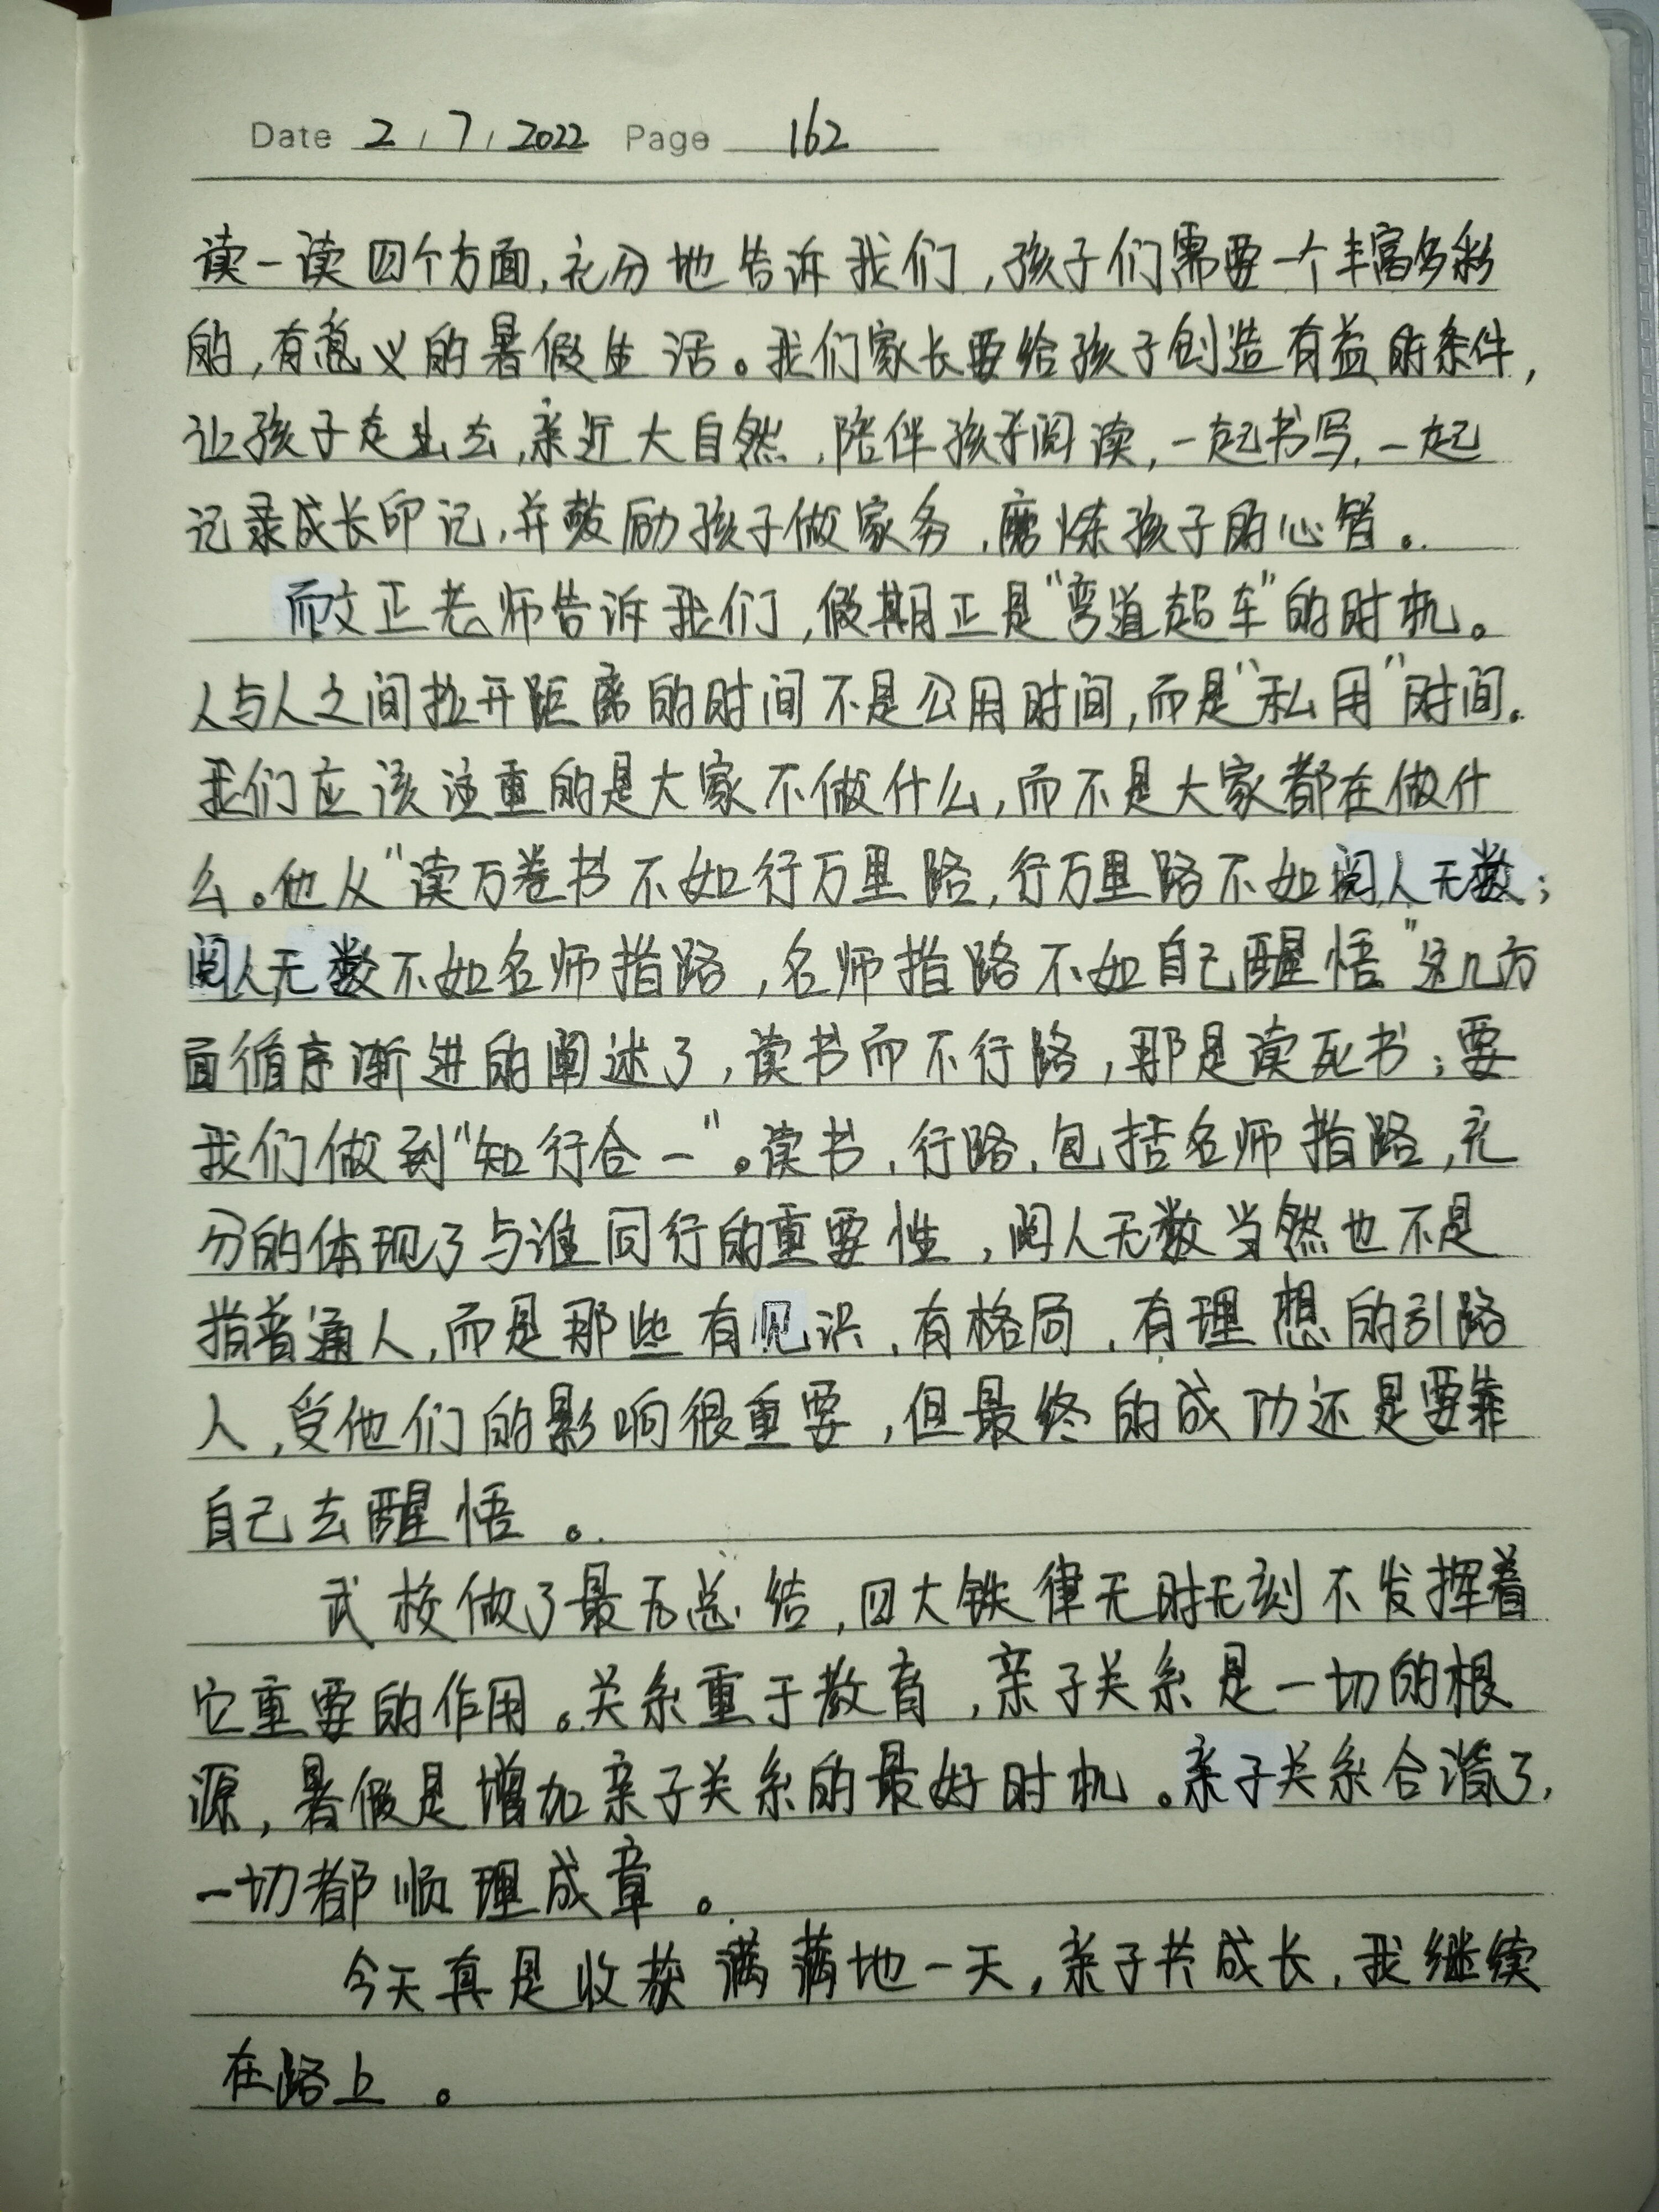 Date 2 / 7 / 2022 Page 162
读一读四个方面,充分地告诉我们,孩子们需要一个丰富多彩
的,有意义的暑假生活。我们家长要给孩子创造有益的条件,
让孩子走出去,亲近大自然,陪伴孩子阅读,一起书写,一起
记录成长印记,并鼓励孩子做家务,磨炼孩子的心智。
而文正老师告诉我们,假期正是"弯道超车"的时机。
人与人之间拉开距离的时间不是公用时间,而是"私用"时间。
我们应该注重的是大家不做什么,而不是大家都在做什
么。他从"读万卷书不如行万里路,行万里路不如阅人无数;
阅人无数不如名师指路,名师指路不如自己醒悟"这几方
面循序渐进的阐述了,读书而不行路,那是读死书;要
我们做到"知行合一"。读书,行路,包括名师指路,充
分的体现了与谁同行的重要性,阅人无数当然也不是
指普通人,而是那些有见识,有格局,有理想的引路
人,受他们的影响很重要,但最终的成功还是要靠
自己去醒悟。
武校做了最后总结,四大铁律无时无刻不发挥着
它重要的作用。关系重于教育,亲子关系是一切的根
源,暑假是增加亲子关系的最好时机。亲子关系合谐了,
一切都顺理成章。
今天真是收获满满地一天,亲子共成长,我继续
在路上。